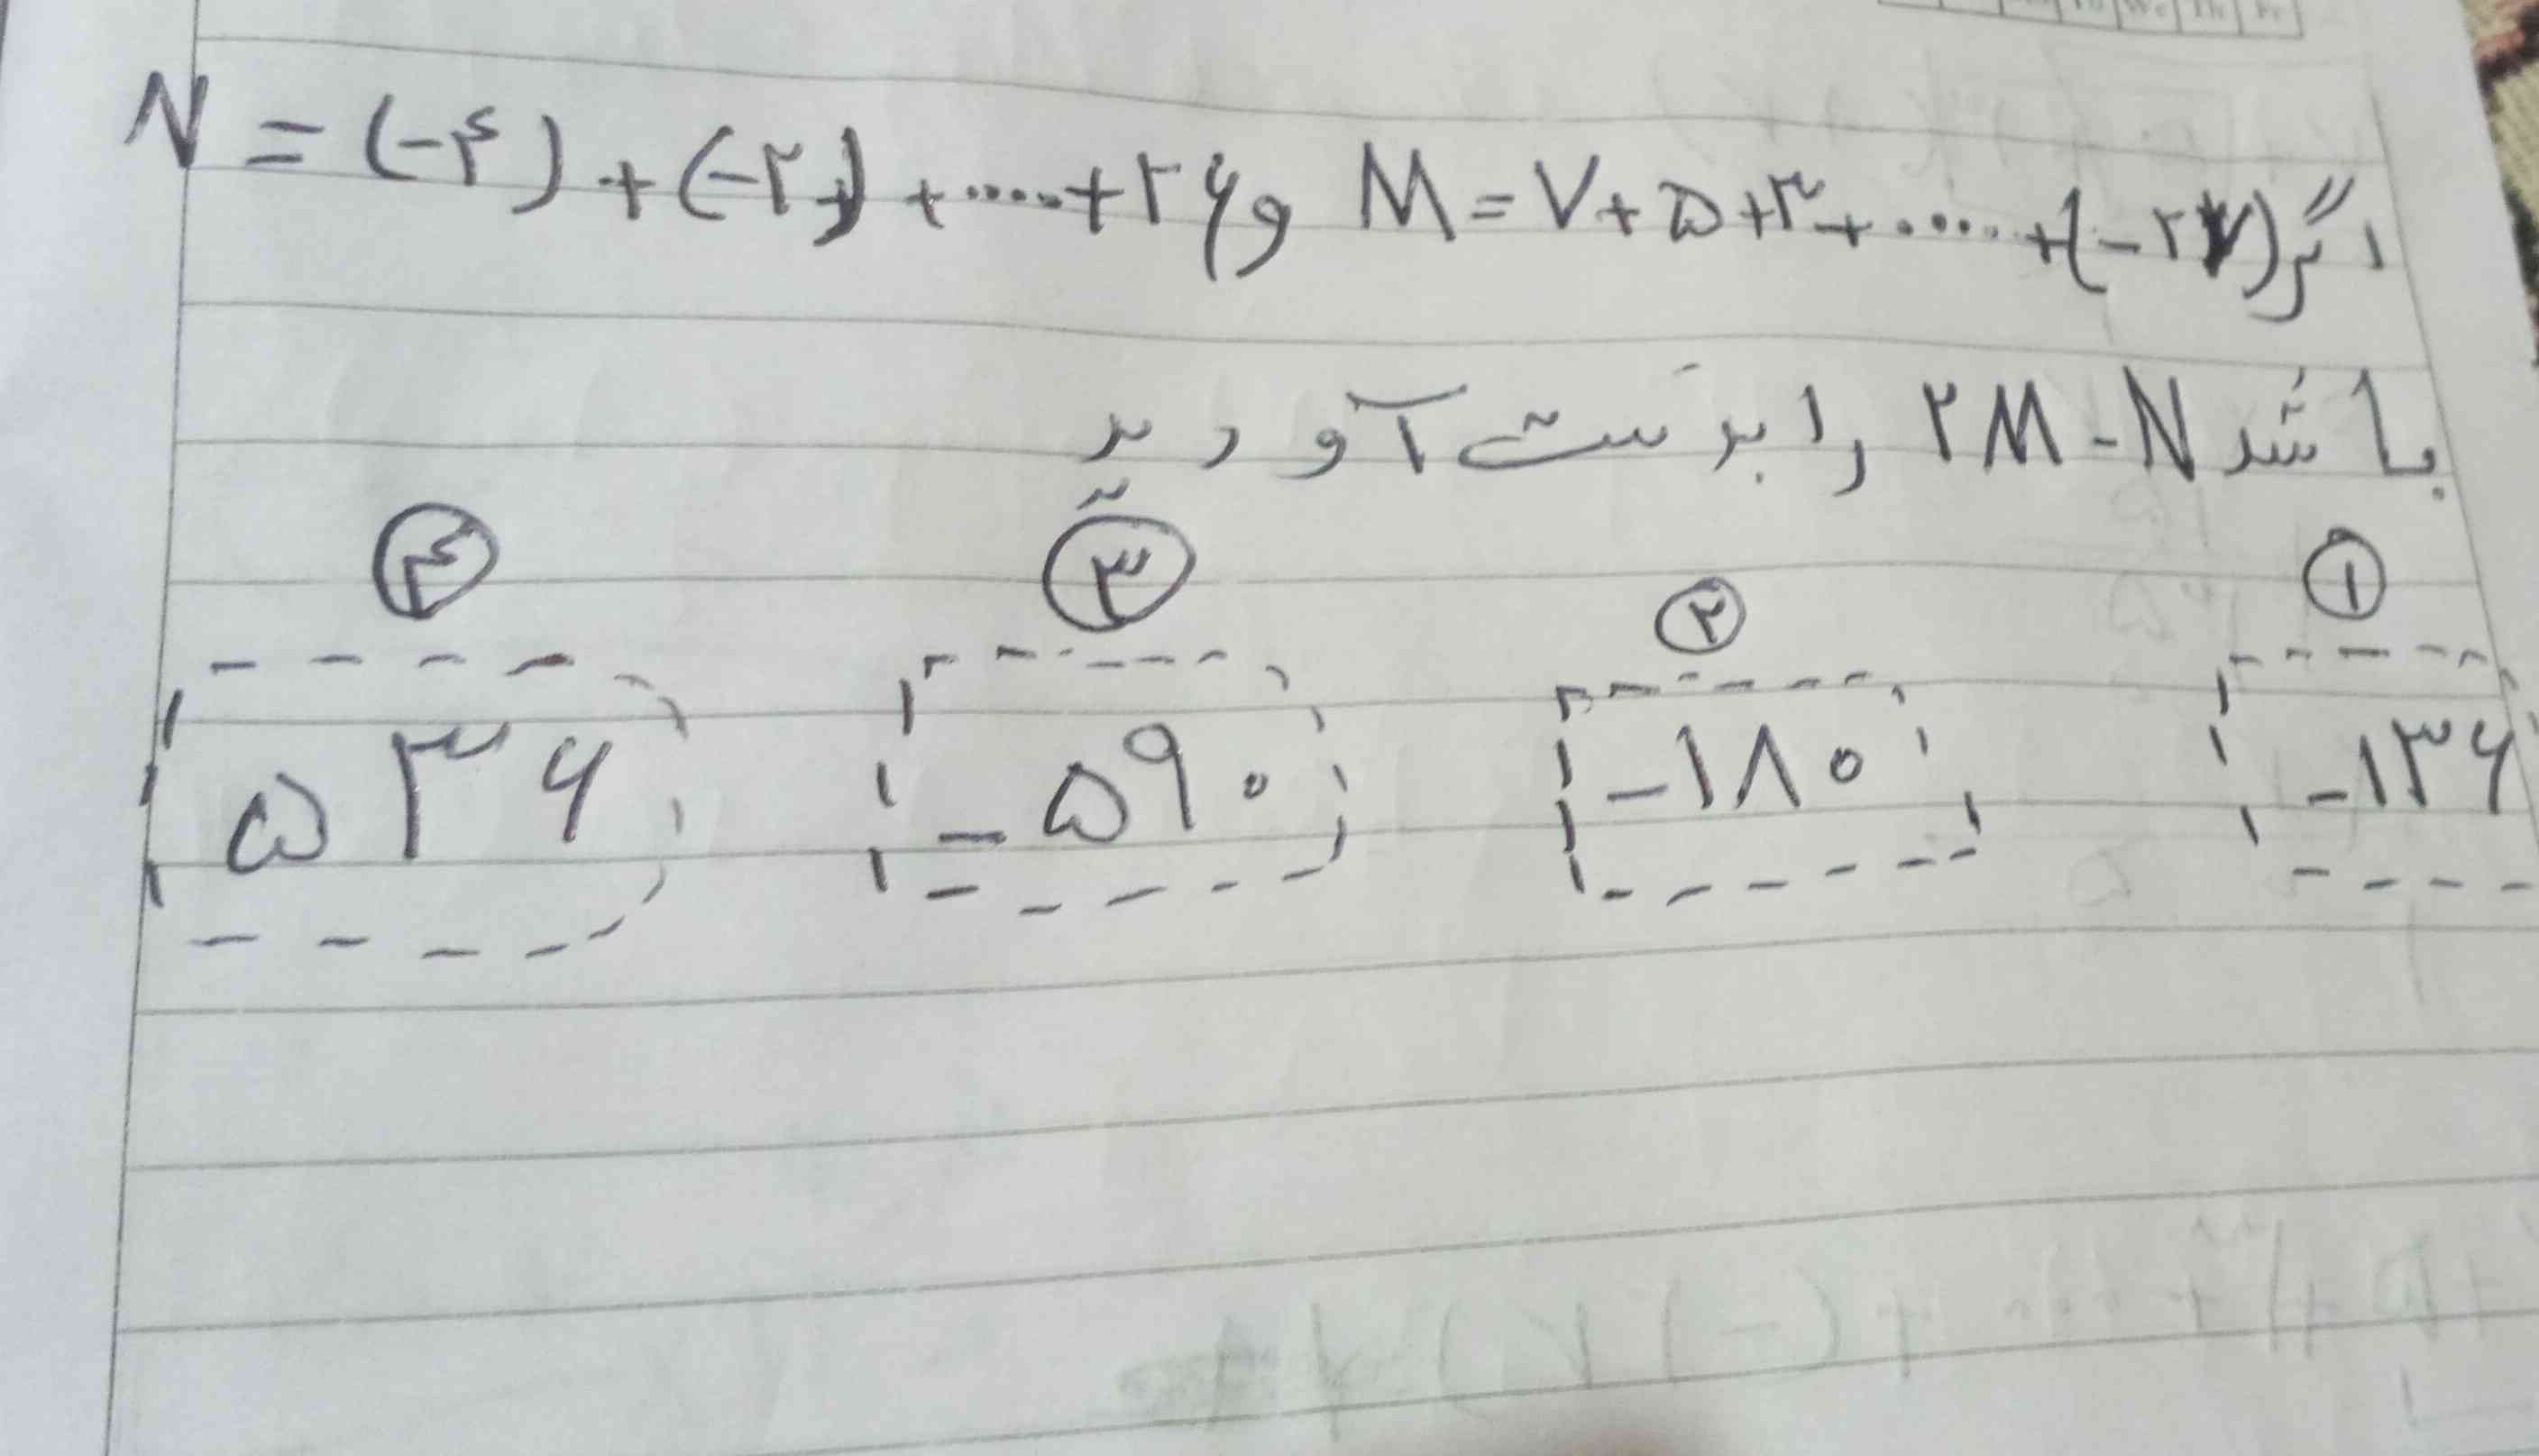 اگر M = ۷ + ۵ + ۳ + ..... + (-۲۷) و N = (-۴) + (-۲) + ..... + ۲۶
باشد ۲M - N را بدست آورید
① ② ③ ④
-۱۳۶ -۱۸۰ -۵۹۰ ۵۳۶